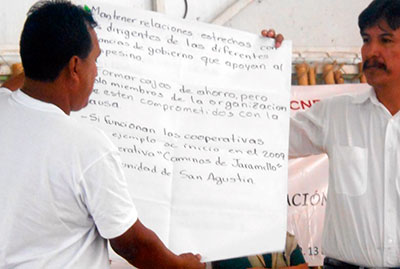 Mantener relaciones estrechas con
dirigentes de las diferentes
de gobierno que apoyan al
de ahorro, pero
miembros de la organizacion
esten comprometidos con la
ausa.
- Si funcionan las cooperativas
ejemplo se inicio en el 2009
erativa "Caminos de Jaramillo"
nidad de San Agustin
CNP
ACIÓN
13